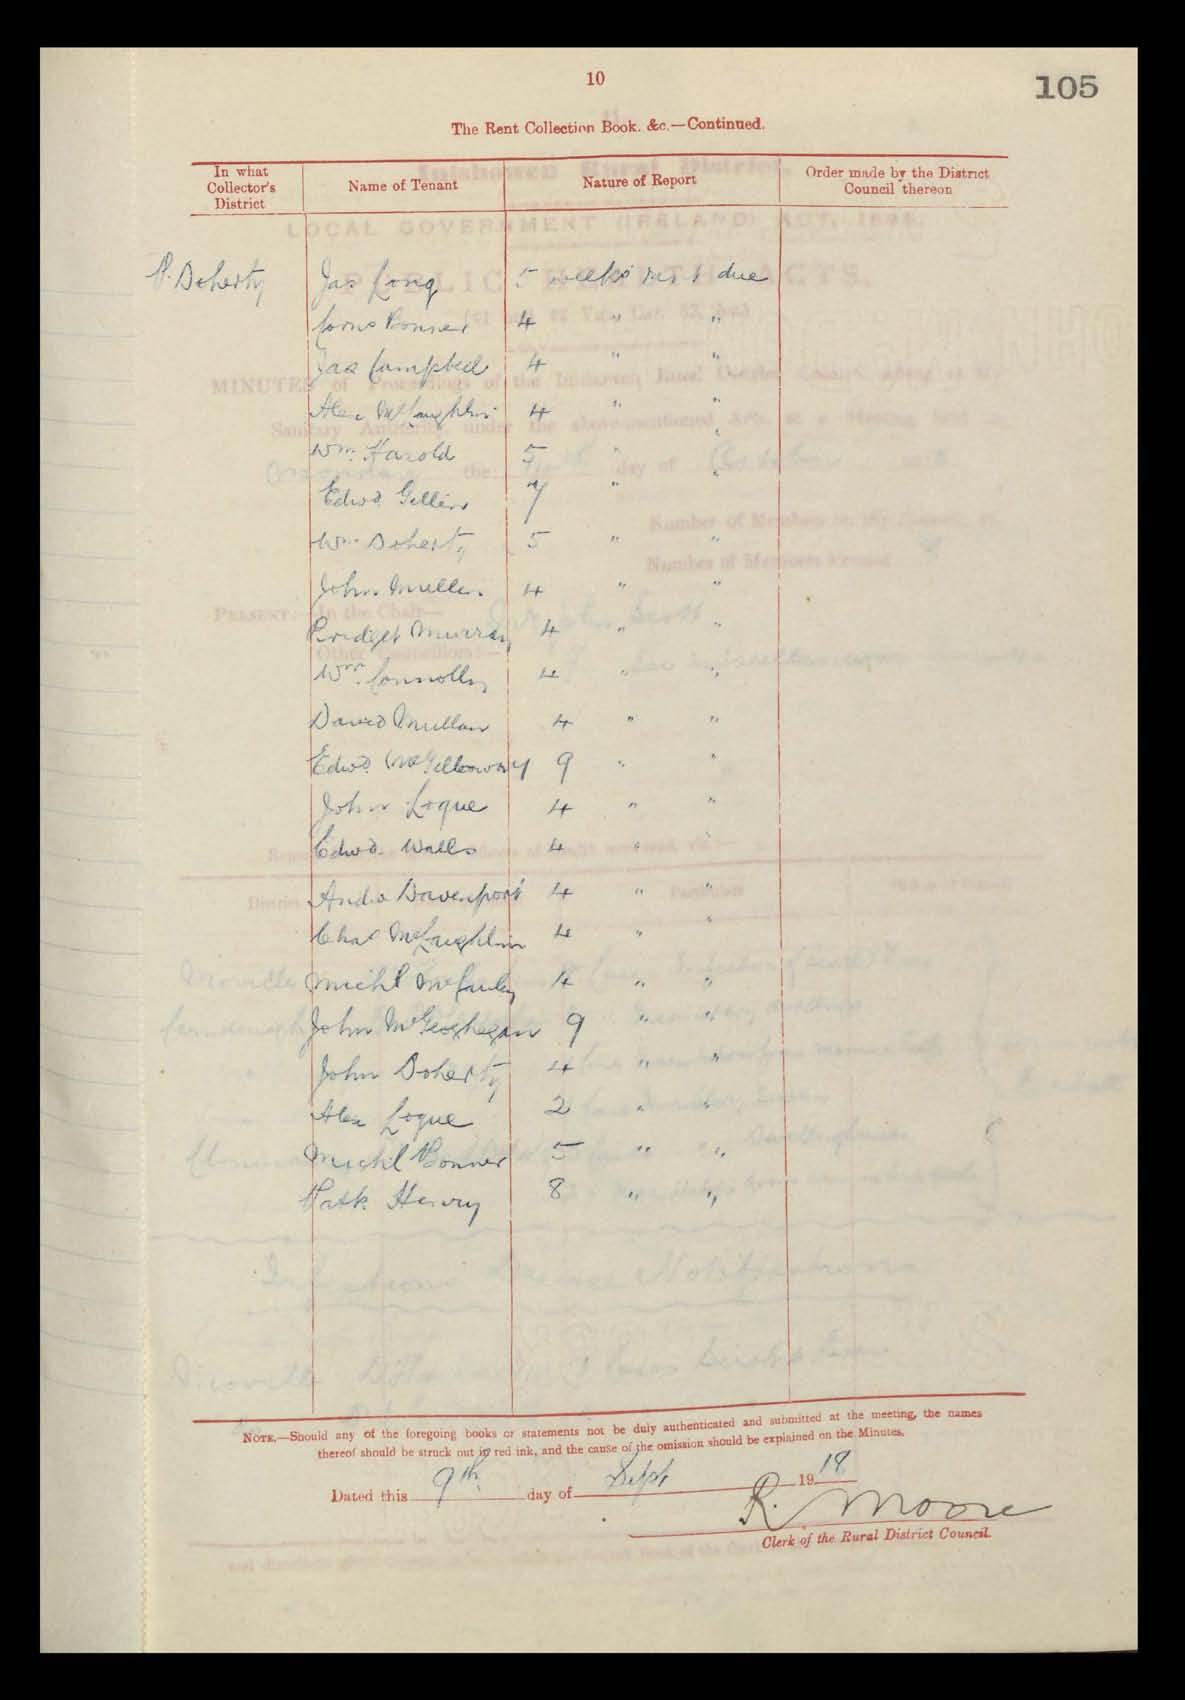 10
105
The Rent Collection Book. &c.—Continued.
In what Collector's District
Name of Tenant
Nature of Report
Order made by the District Council thereon
P. Doherty Jas Long 5 weeks rent due
Bonner 4 " "
Jas Campbell 4 " "
Alex McLaughlin 4 " "
Wm. Harold 5 " "
Edwd. 7 " "
Wm. Doherty 5 " "
John Mullen 4 " "
Bridget Murray 4 " "
Wm. Connolly 4 " "
David Mullan 4 " "
Edwd. McGilloway 9 " "
John Logue 4 " "
Edwd. Walls 4 " "
Andw Davenport 4 " "
Chas McLaughlin 4 " "
Michl McCauley 4 " "
John McGeoghegan 9 " "
John Doherty 4 " "
Alex Logue 2 " "
Michl Bonner 5 " "
Patk Henry 8 " "
NOTE.—Should any of the foregoing books or statements not be duly authenticated and submitted at the meeting, the names
thereof should be struck out in red ink, and the cause of the omission should be explained on the Minutes.
Dated this 9th. day of Sept 1918
R. Moore
Clerk of the Rural District Council.